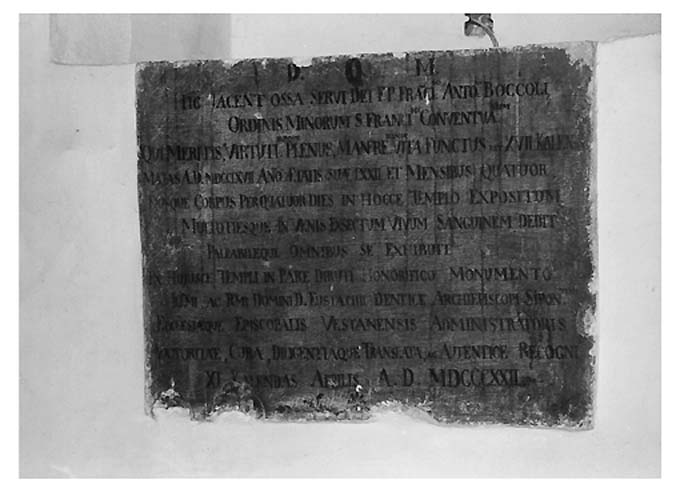 D. O. M.
HIC JACENT OSSA SERVI DEI F. P. FRATIS ANTO BOCCOLI
ORDINIS MINORUM S. FRANCI CONVENTUA
QUI MERITIS, VIRTUTI PLENUS, VITA FUNCTUS XVII KALEN
MAJAS A. D. MDCCLXVII AÑO ÆTATIS SUÆ LXXII ET MENSIBUS QUATUOR
CORPUS PER QUATUOR DIES IN HOCCE TEMPLO EXPOSITUM
MULTOTIESQUE IN VENIS EXSECTUM VIVUM SANGUINEM DEDIT
PALPABILEQUE OMNIBUS SE EXHIBUIT
IN HUJUSCE TEMPLI IN PARE DIRUTI HONORIFICO MONUMENTO
AC RMI DOMINI D. EUSTACHII DENTICE ARCHIEPISCOPI SIPON
ECCLESIÆQUE EPISCOPALIS VESTANENSIS ADMINISTRATORIS
AUCTORITATE, CURA, DILIGENTIAQUE TRANSLATA, AUTENTICE RECOGNI
XI KALENDAS APRILIS A. D. MDCCCXXII